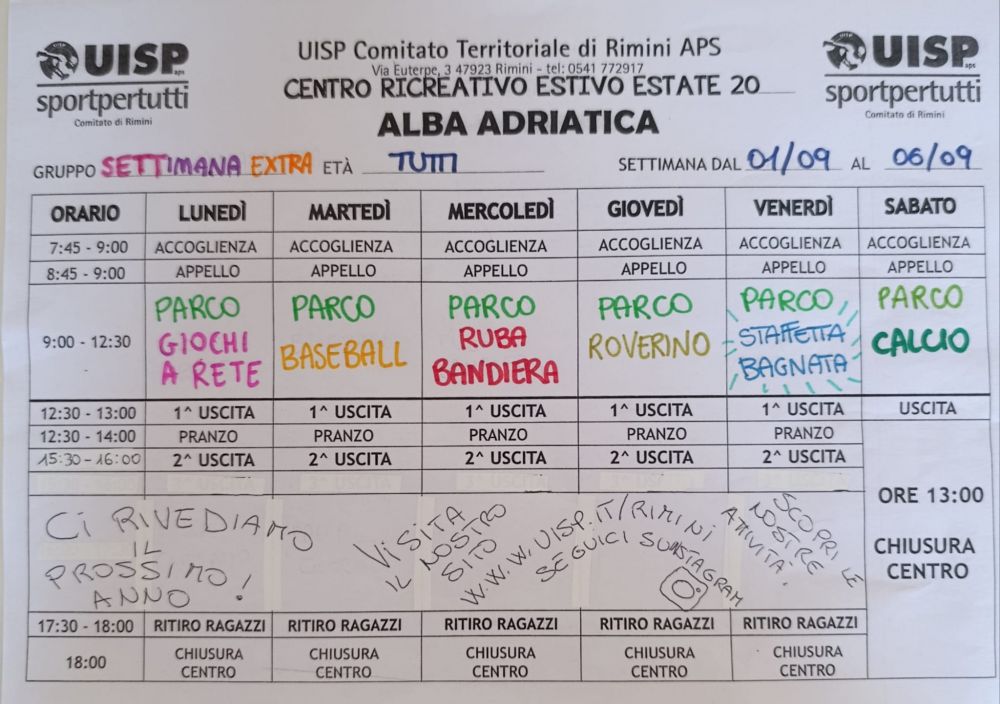 UISP aps
sportpertutti
Comitato di Rimini
UISP Comitato Territoriale di Rimini APS
Via Euterpe, 3 47923 Rimini - tel: 0541 772917
CENTRO RICREATIVO ESTIVO ESTATE 20
ALBA ADRIATICA
UISP aps
sportpertutti
Comitato di Rimini
GRUPPO SETTIMANA EXTRA ETÀ TUTTI SETTIMANA DAL 01/09 AL 06/09
ORARIO LUNEDÌ MARTEDÌ MERCOLEDÌ GIOVEDÌ VENERDÌ SABATO
7:45 - 9:00 ACCOGLIENZA ACCOGLIENZA ACCOGLIENZA ACCOGLIENZA ACCOGLIENZA ACCOGLIENZA
8:45 - 9:00 APPELLO APPELLO APPELLO APPELLO APPELLO APPELLO
9:00 - 12:30
PARCO
GIOCHI
A RETE
PARCO
BASEBALL
PARCO
RUBA
BANDIERA
PARCO
ROVERINO
PARCO
STAFFETTA
BAGNATA
PARCO
CALCIO
12:30 - 13:00 1^ USCITA 1^ USCITA 1^ USCITA 1^ USCITA 1^ USCITA USCITA
12:30 - 14:00 PRANZO PRANZO PRANZO PRANZO PRANZO
15:30-16:00 2^ USCITA 2^ USCITA 2^ USCITA 2^ USCITA 2^ USCITA
CI RIVEDIAMO
IL
PROSSIMO!
ANNO
VISITA
IL NOSTRO
SITO
WWW.UISP.IT/RIMINI
SEGUICI SU INSTAGRAM
SCOPRI LE
NOSTRE
ATTIVITA'
ORE 13:00
CHIUSURA
CENTRO
17:30 - 18:00 RITIRO RAGAZZI RITIRO RAGAZZI RITIRO RAGAZZI RITIRO RAGAZZI RITIRO RAGAZZI
18:00
CHIUSURA
CENTRO
CHIUSURA
CENTRO
CHIUSURA
CENTRO
CHIUSURA
CENTRO
CHIUSURA
CENTRO